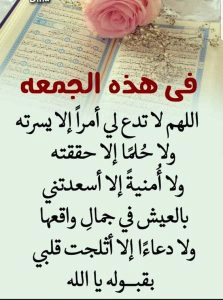 في هذه الجمعه
اللهم لا تدع لي أمراً إلا يسرته
ولا حُلمًا إلا حققته
ولا أُمنيةً إلا أسعدتني
بالعيش في جمالِ واقعها
ولا دعاءًا إلا أثلجت قلبي
بقبـــوله يا الله